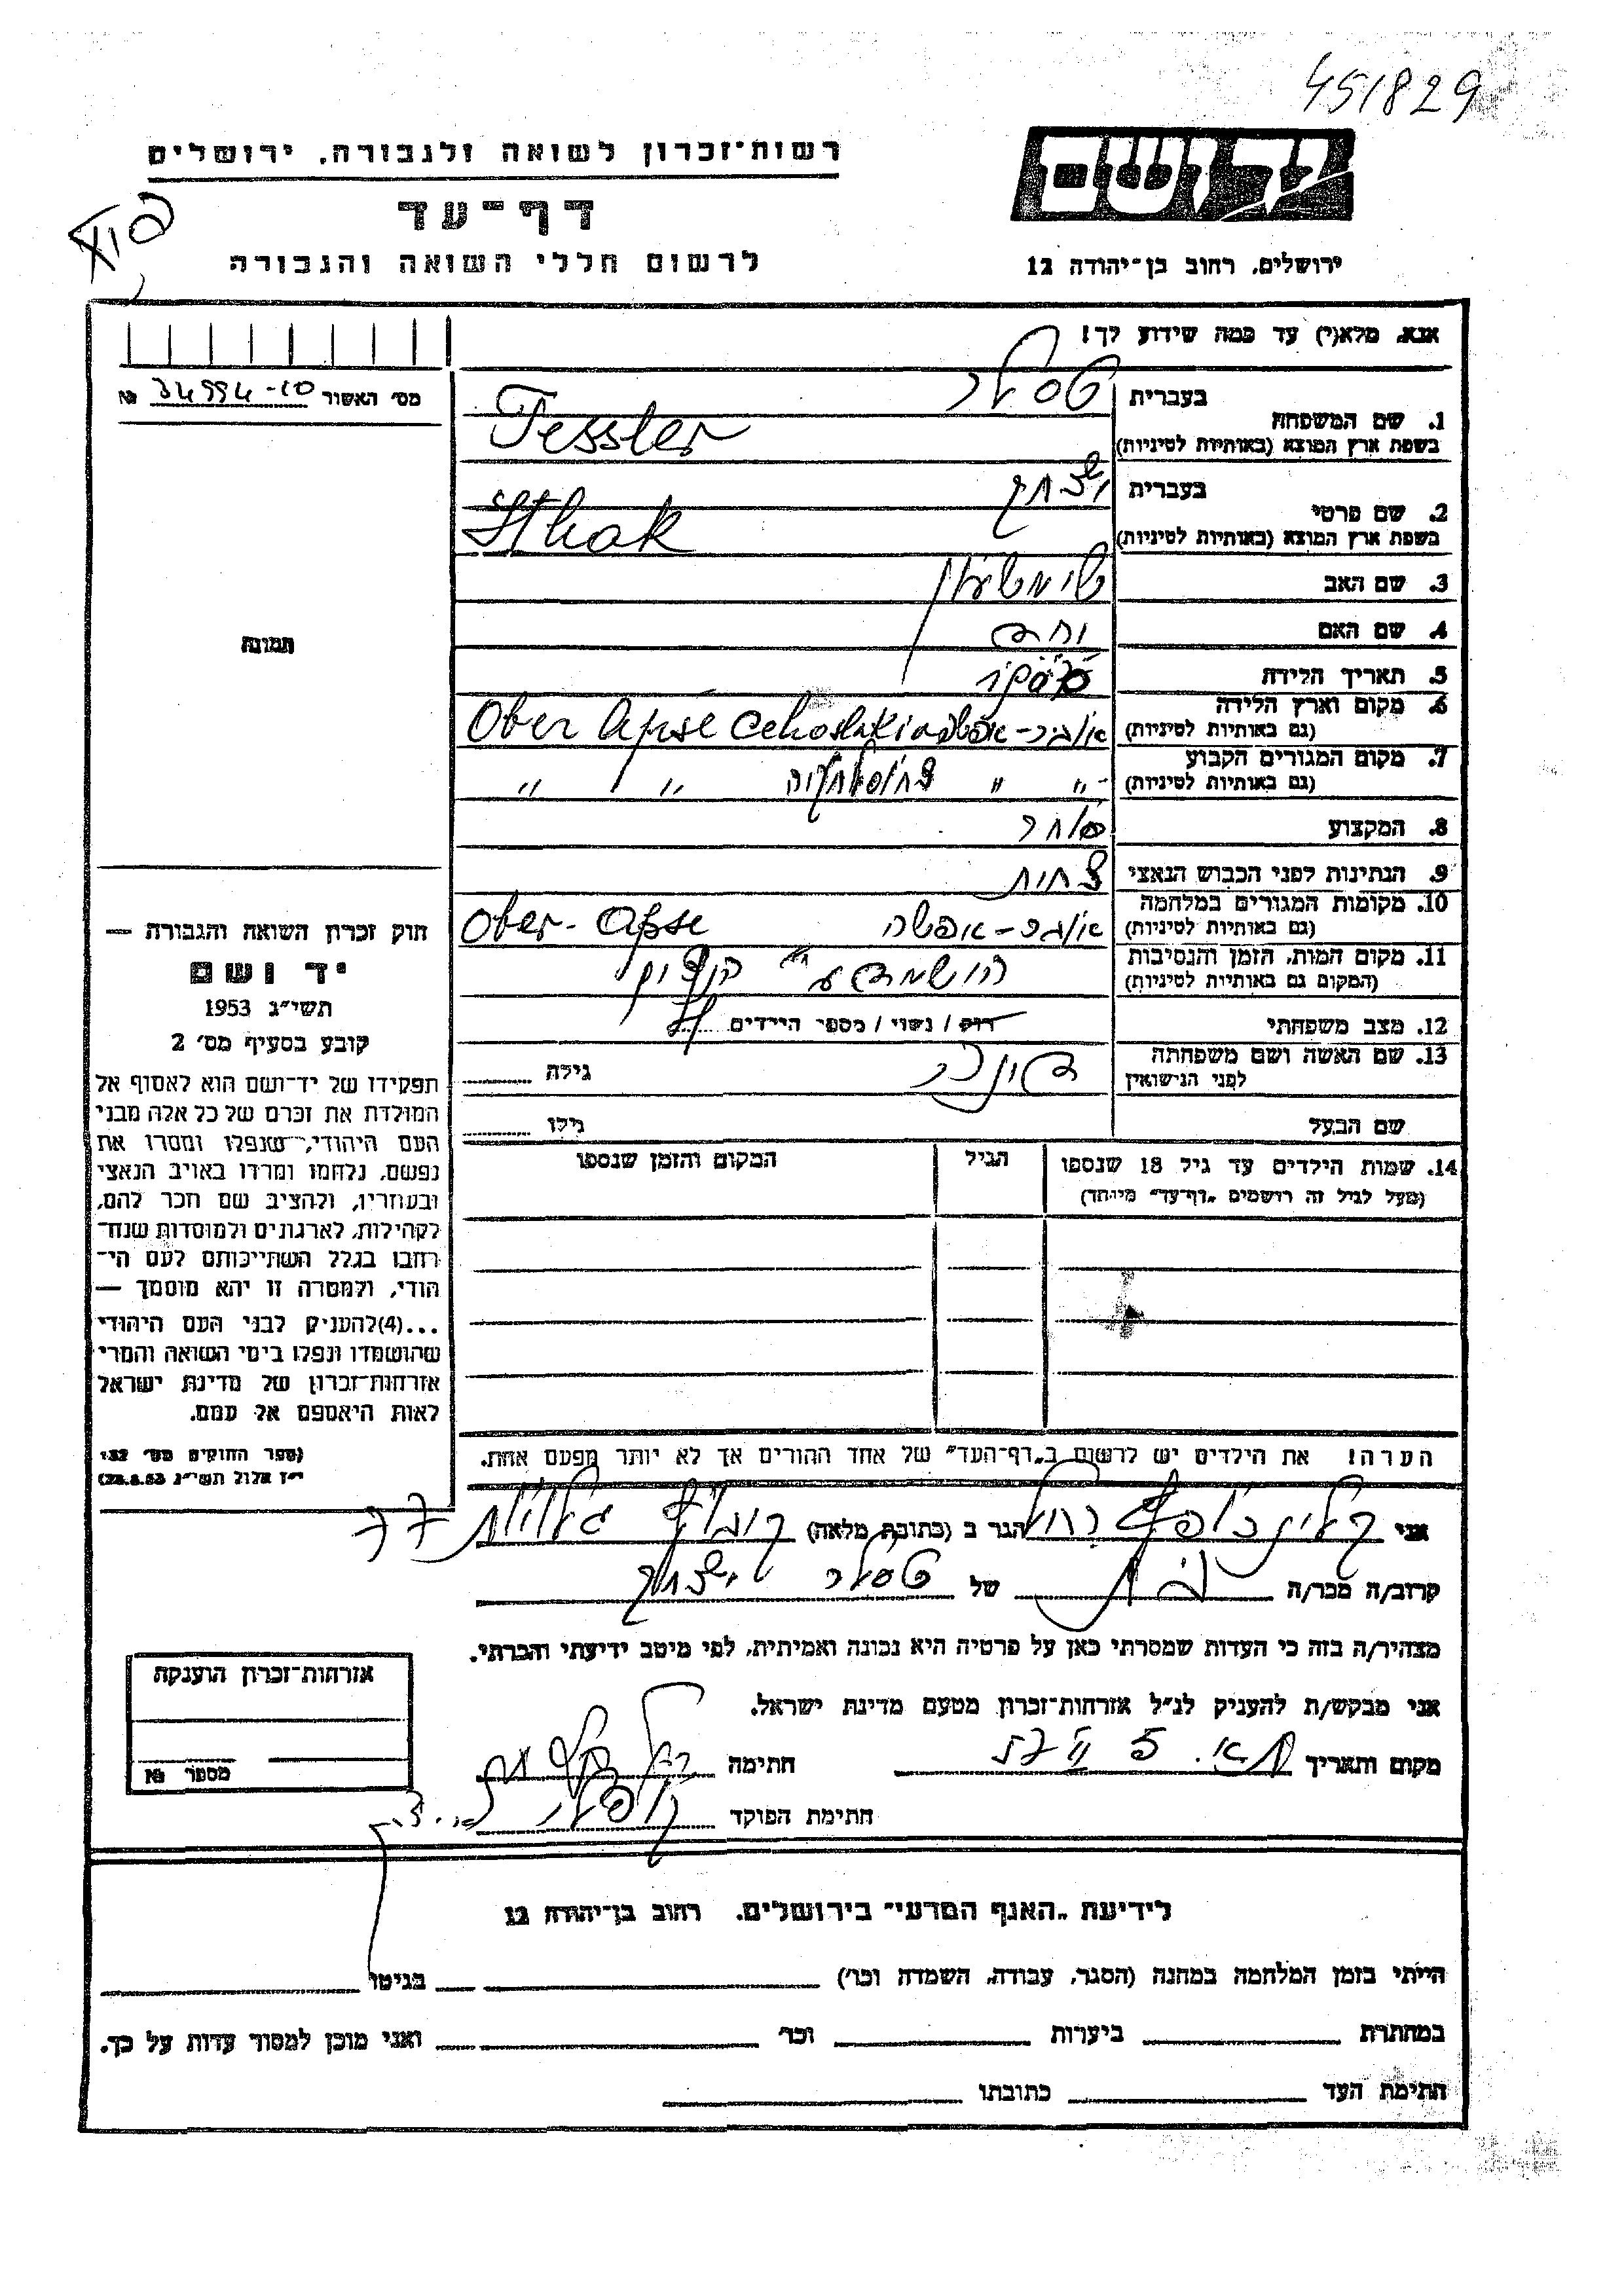 451829
רשות־זכרון לשואה ולגבורה, ירושלים
דף־עד
לרשום חללי השואה והגבורה
יד ושם
ירושלים, רחוב בן־יהודה 12
אנא, מלא(י) עד כמה שידוע לך!
מס׳ האשור 34994-10 №
תמונה
1. שם המשפחה
בעברית טסלר
בשפת ארץ המוצא (באותיות לטיניות) Tessler
2. שם פרטי
בעברית יצחק
בשפת ארץ המוצא (באותיות לטיניות) Ithak
3. שם האב
4. שם האם
5. תאריך הלידה
6. מקום וארץ הלידה
(גם באותיות לטיניות) Ober Apse
7. מקום המגורים הקבוע
(גם באותיות לטיניות) " " " "
8. המקצוע סוחר
9. הנתינות לפני הכבוש הנאצי צ׳כית
10. מקומות המגורים במלחמה
(גם באותיות לטיניות) אובר-אפשה Ober-Apse
11. מקום המות, הזמן והנסיבות
(המקום גם באותיות לטיניות)
12. מצב משפחתי רוק / נשוי / מספר הילדים
13. שם האשה ושם משפחתה
לפני הנישואין גילה
שם הבעל גילו
14. שמות הילדים עד גיל 18 שנספו הגיל המקום והזמן שנספו
(מעל לגיל זה רושמים „דף־עד״ מיוחד)
הערה! את הילדים יש לרשום ב„דף־העד״ של אחד ההורים אך לא יותר מפעם אחת.
חוק זכרון השואה והגבורה —
יד ושם
תשי״ג 1953
קובע בסעיף מס׳ 2
תפקידו של יד־ושם הוא לאסוף אל
המולדת את זכרם של כל אלה מבני
העם היהודי, שנפלו ומסרו את
נפשם, נלחמו ומרדו באויב הנאצי
ובעוזריו, ולהציב שם וזכר להם,
לקהילות, לארגונים ולמוסדות שנח־
רבו בגלל השתייכותם לעם הי־
הודי, ולמטרה זו יהא מוסמך —
...(4) להעניק לבני העם היהודי
שהושמדו ונפלו בימי השואה והמרי
אזרחות־זכרון של מדינת ישראל
לאות היאספם אל עמם.
(ספר החוקים מס׳ 132
י״ז אלול תשי״ג 28.8.53)
אני רחל הגר ב (כתובת מלאה) קבוץ גלויות 77
קרוב/ה מכר/ה בת של טסלר יצחק
מצהיר/ה בזה כי העדות שמסרתי כאן על פרטיה היא נכונה ואמיתית, לפי מיטב ידיעתי והכרתי.
אני מבקש/ת להעניק לנ״ל אזרחות־זכרון מטעם מדינת ישראל.
מקום ותאריך חתימה
חתימת הפוקד
אזרחות־זכרון הוענקה
מספר №
לידיעת „האגף המדעי״ בירושלים, רחוב בן־יהודה 12
הייתי בזמן המלחמה במחנה (הסגר, עבודה, השמדה וכו׳) בגיטו
במחתרת ביערות וכו׳ ואני מוכן למסור עדות על כך.
חתימת העד כתובתו